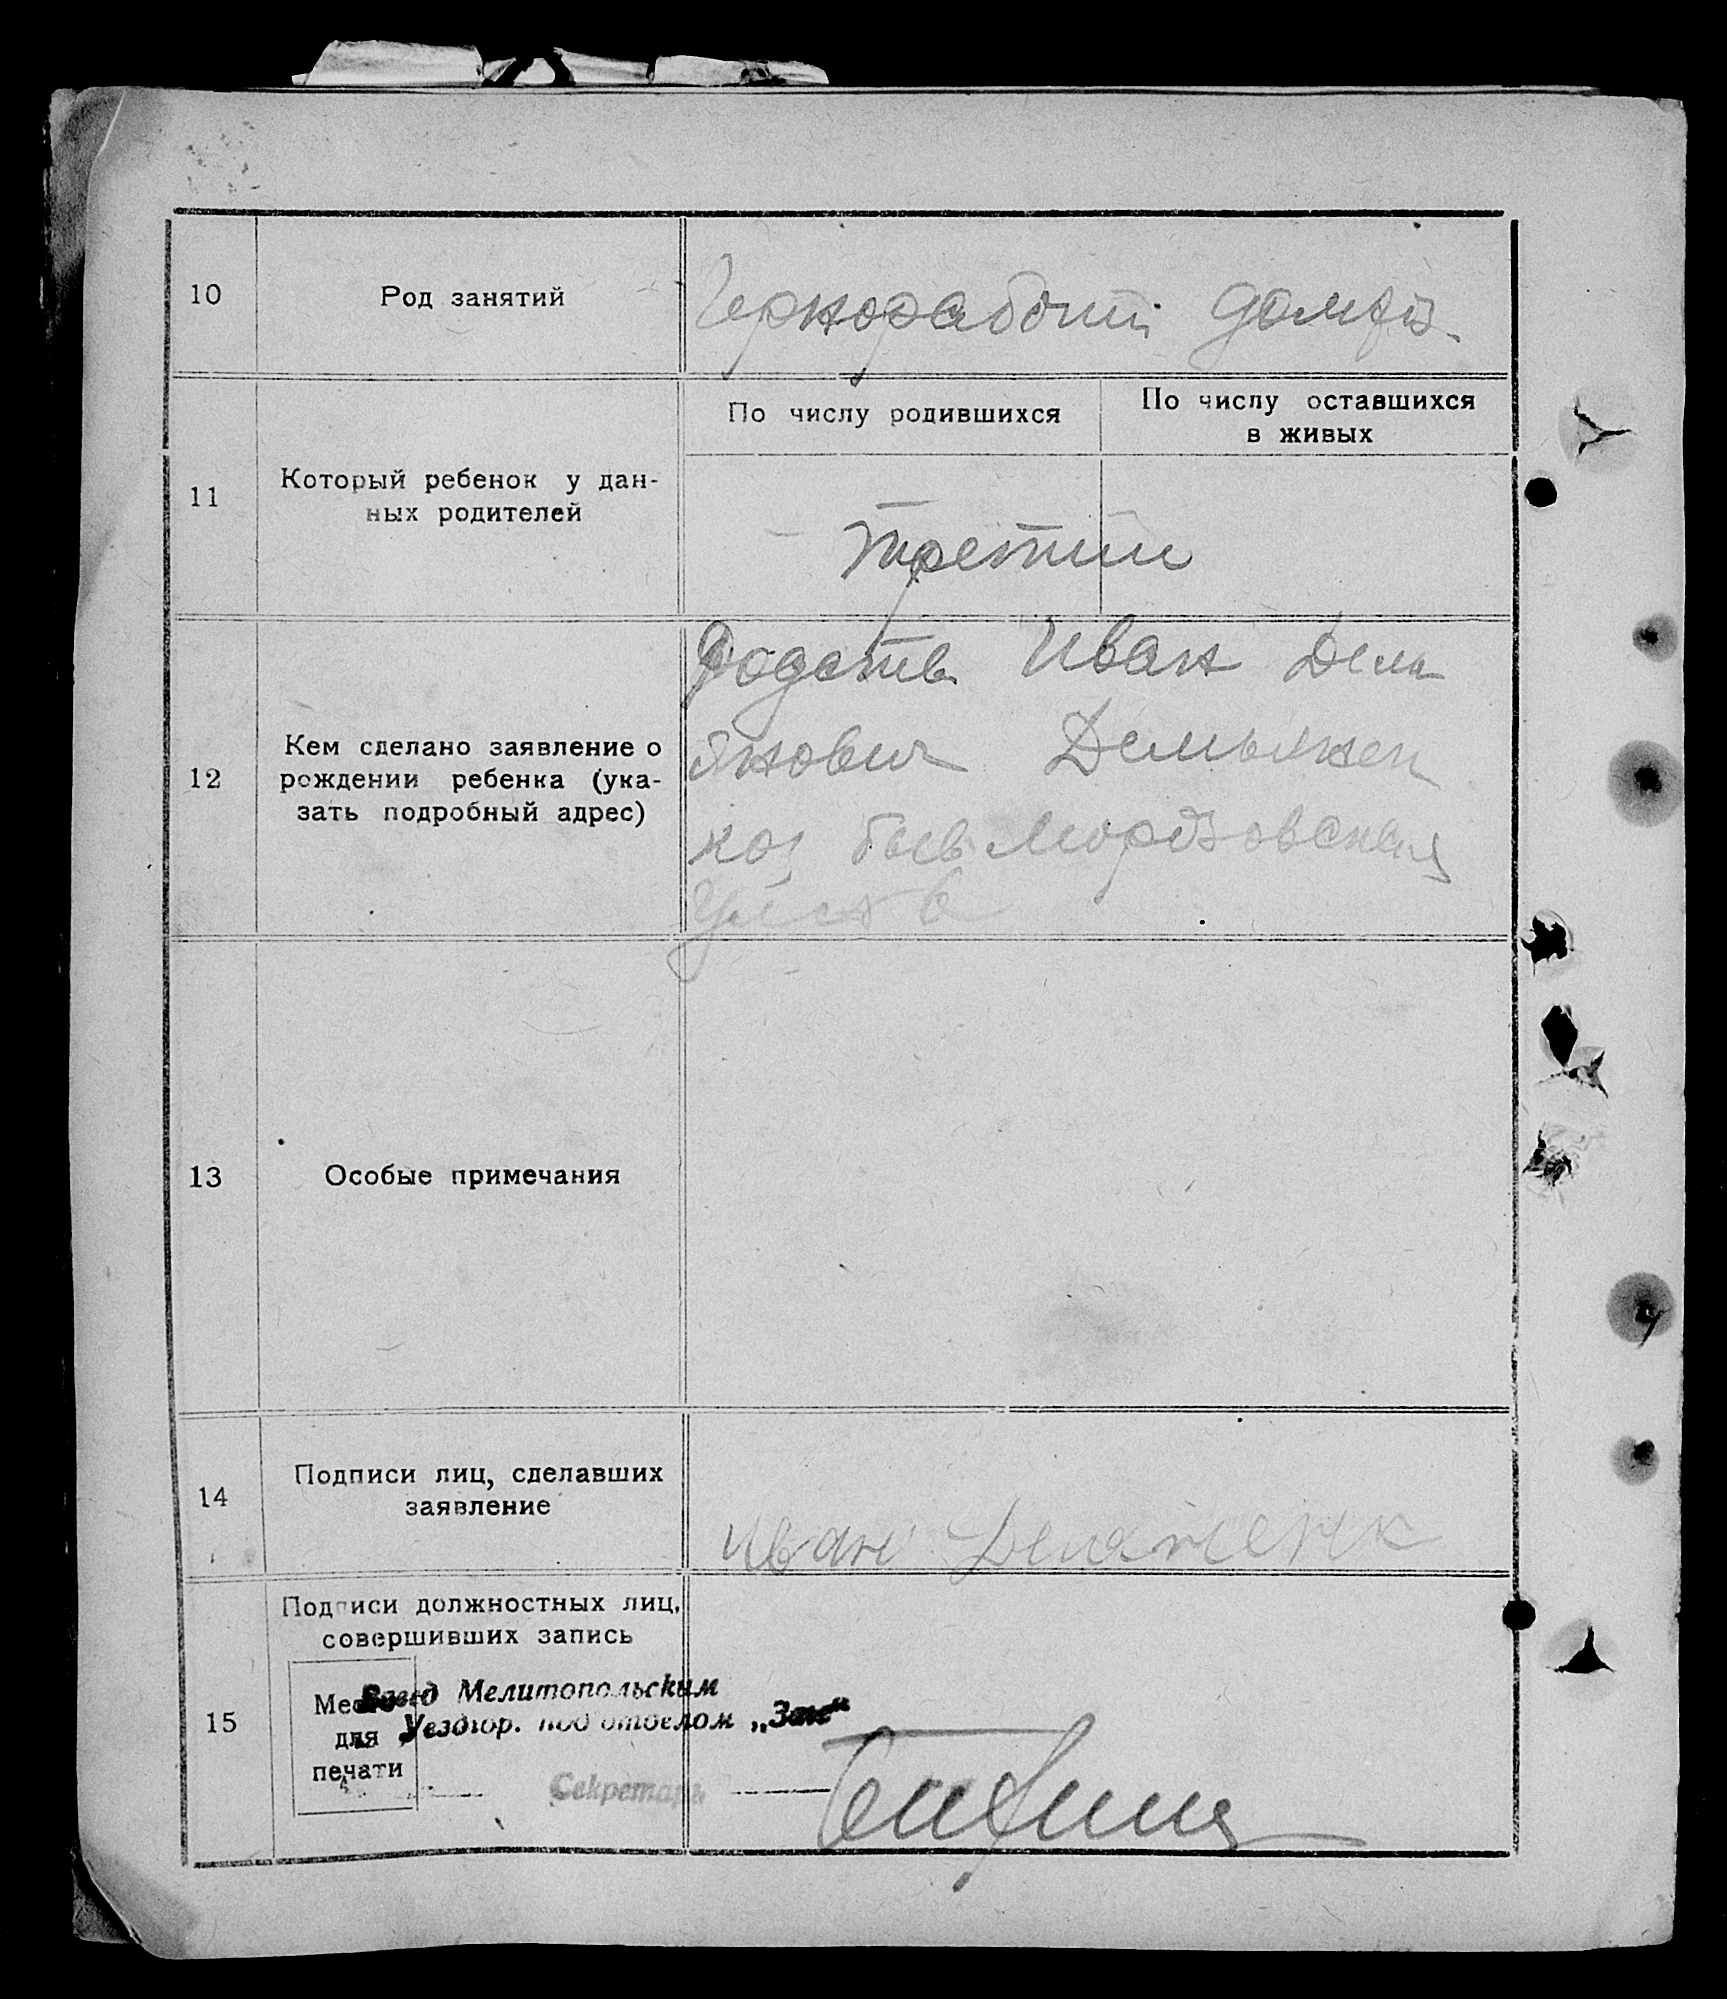 10
Род занятий
Чернорабочий
11
Который ребенок у дан-
ных родителей
По числу родившихся
По числу оставшихся
в живых
третий
12
Кем сделано заявление о
рождении ребенка (ука-
зать подробный адрес)
Иван Демь
янович Демьянен
ко
13
Особые примечания
14
Подписи лиц, сделавших
заявление
Иван
15
Подписи должностных лиц,
совершивших запись
Место
для
печати
Завед Мелитопольским
Уездгор. под'отделом „Загс“
Секретарь